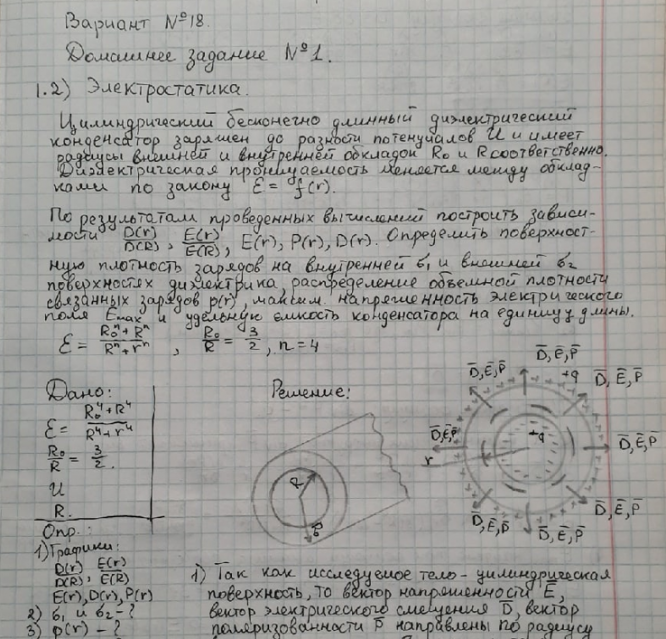 Вариант №18.
Домашнее задание №1.
1.2) Электростатика.
Цилиндрический бесконечно длинный диэлектрический
конденсатор заряжен до разности потенциалов U и имеет
радиусы внешней и внутренней обкладок R₀ и R соответственно.
Диэлектрическая проницаемость меняется между обклад-
ками по закону ε = f(r).
По результатам проведенных вычислений построить зависи-
мости D(r)/D(R), E(r)/E(R), E(r), P(r), D(r). Определить поверхност-
ную плотность зарядов на внутренней σ₁ и внешней σ₂
поверхностях диэлектрика, распределение объемной плотности
связанных зарядов ρ(r), максим. напряженность электрического
поля Eмах и удельную емкость конденсатора на единицу длины.
ε = (R₀ⁿ + Rⁿ)/(Rⁿ + rⁿ), R₀/R = 3/2, n = 4
Дано:
ε = (R₀⁴ + R⁴)/(R⁴ + r⁴)
R₀/R = 3/2.
U
R.
Опр.:
1) Графики:
D(r)/D(R), E(r)/E(R)
E(r), D(r), P(r)
2) σ₁ и σ₂ - ?
3) ρ(r) - ?
Решение:
R
D̄, Ē, P̄
D̄, Ē, P̄
+q
D̄, Ē, P̄
D̄, Ē, P̄
+q
D̄, Ē, P̄
r
D̄, Ē, P̄
D̄, Ē, P̄
D̄, Ē, P̄
1) Так как исследуемое тело - цилиндрическая
поверхность, то вектор напряженности Ē,
вектор электрического смещения D̄, вектор
поляризованности P̄ направлены по радиусу